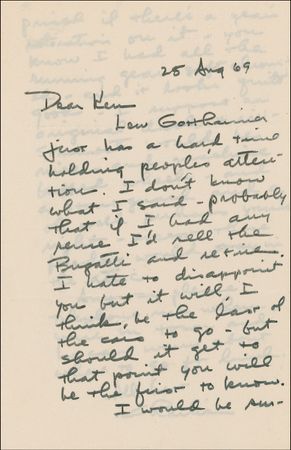 25 Aug 69
Dear Ken
Lew Gotthainer
just has a hard time
holding peoples atten-
tion. I don't know
what I said - probably
that if I had any
sense I'd sell the
Bugatti and retire.
I hate to disappoint
you but it will, I
think, be the last of
the cars to go - but
should it get to
that point you will
be the first to know.
I would be sur-